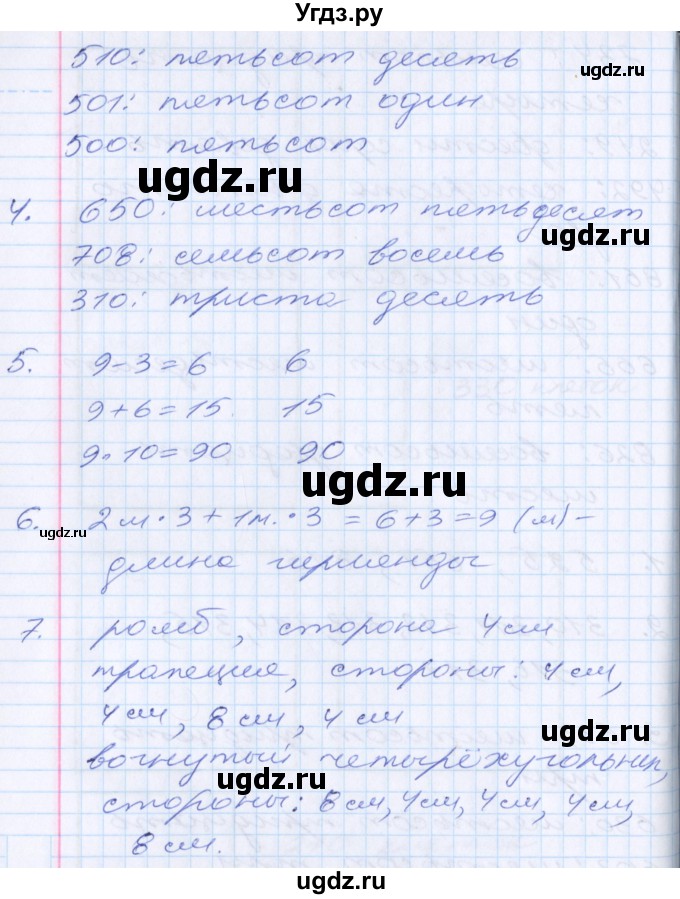 Угдз.ру
510: пятьсот десять
ugdz.ru
501: пятьсот один
500: пятьсот
ugdz.ru
4. 650: шестьсот пятьдесят
ugdz.ru
708: семьсот восемь
310: триста десять
5. 9-3=6 6
9+6=15. 15
9·10=90 90
ugdz.ru
6. 2м·3+1м.·3 = 6+3=9 (м)-
ugdz.ru
длина гирлянды
7. ромб, сторона 4см
трапеция, стороны: 4см,
4см, 8см, 4см
ugdz.ru
вогнутый четырёхугольник,
ugdz.ru
стороны: 8см, 4см, 4см, 4см,
8см.
ugdz.ru